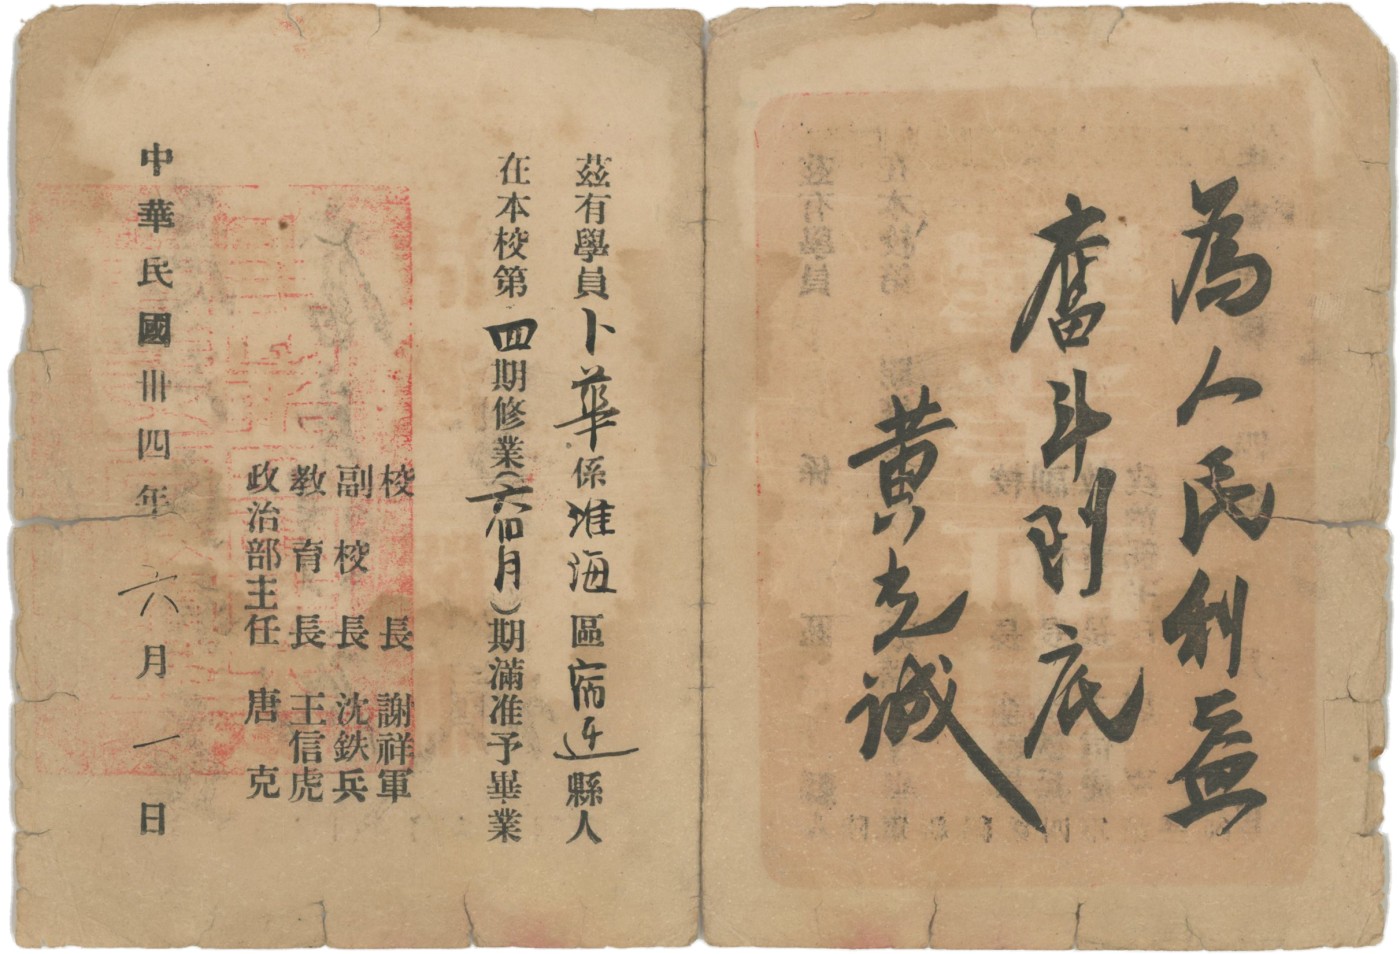 為人民利益
奮斗到底
黄克誠
茲有學員卜華係淮海區宿迁縣人
在本校第四期修業(六個月)期滿准予畢業
校長 謝祥軍
副校長 沈鉄兵
教育長 王信虎
政治部主任 唐克
中華民國卅四年六月一日